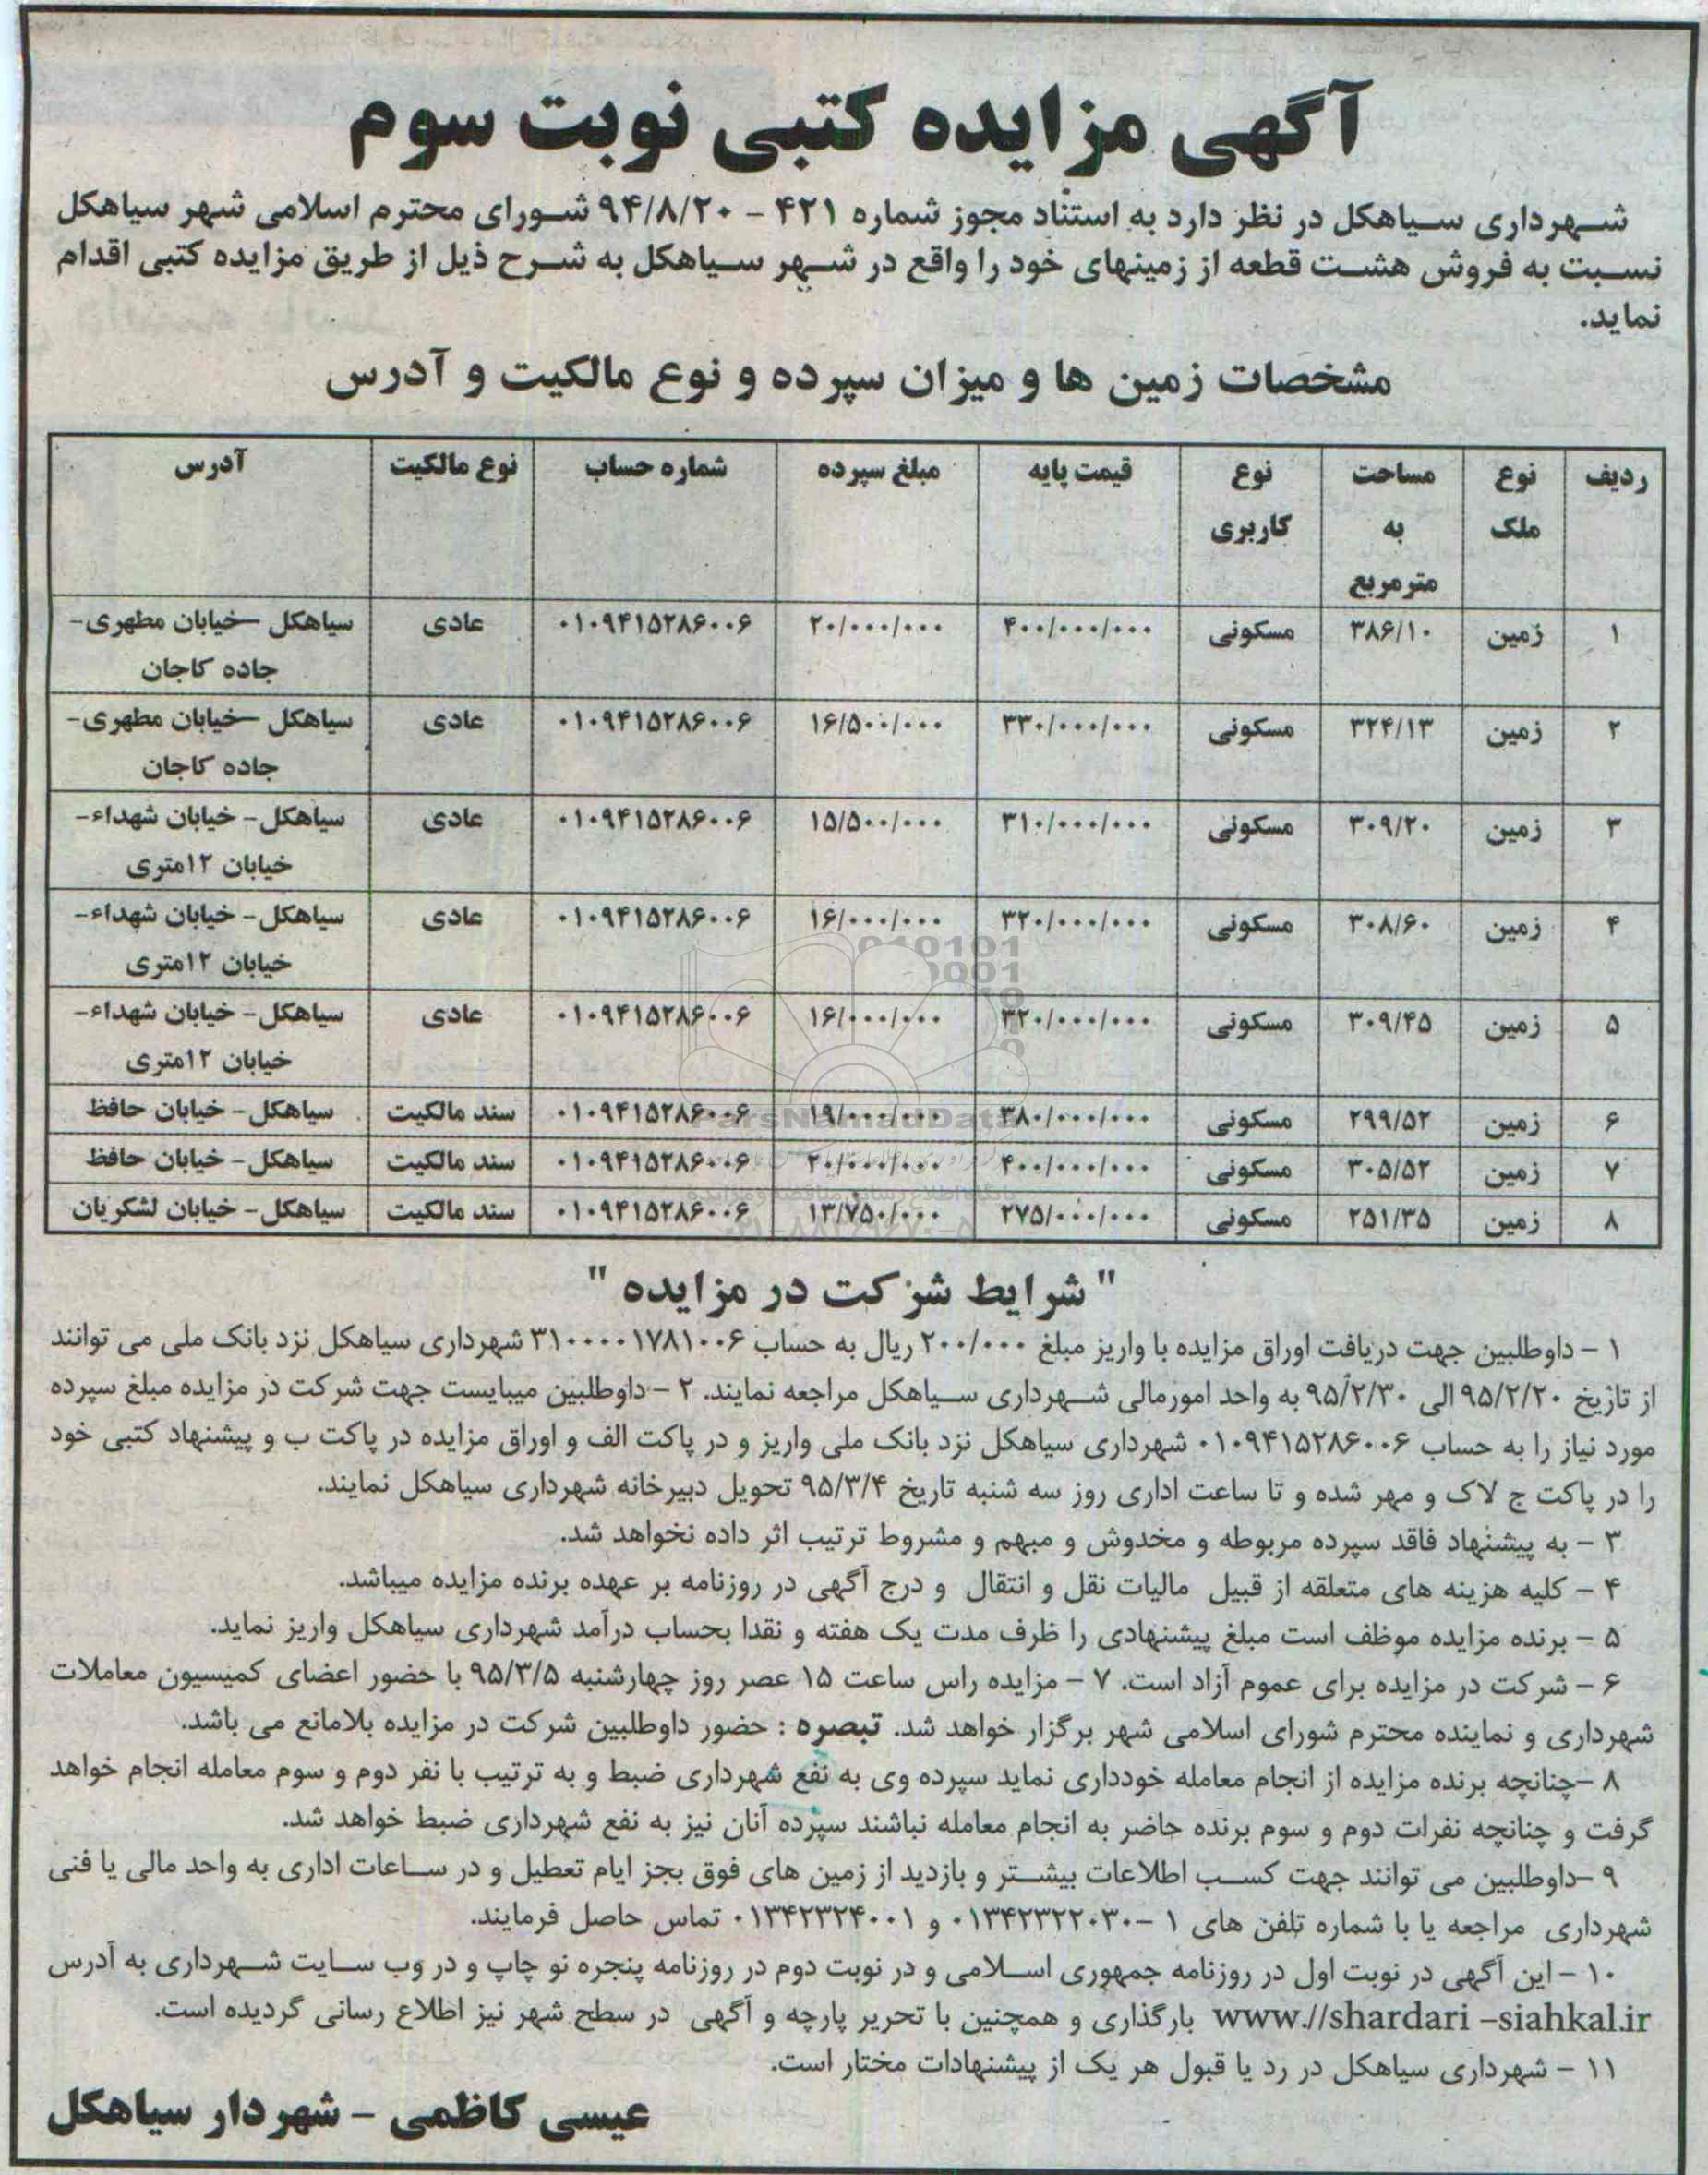 آگهی مزایده کتبی نوبت سوم
شهرداری سیاهکل در نظر دارد به استناد مجوز شماره ۴۲۱ - ۹۴/۸/۲۰ شورای محترم اسلامی شهر سیاهکل
نسبت به فروش هشت قطعه از زمینهای خود را واقع در شهر سیاهکل به شرح ذیل از طریق مزایده کتبی اقدام
نماید.
مشخصات زمین ها و میزان سپرده و نوع مالکیت و آدرس
ردیف نوع ملک مساحت به مترمربع نوع کاربری قیمت پایه مبلغ سپرده شماره حساب نوع مالکیت آدرس
۱ زمین ۳۸۶/۱۰ مسکونی ۴۰۰/۰۰۰/۰۰۰ ۲۰/۰۰۰/۰۰۰ ۰۱۰۹۴۱۵۲۸۶۰۰۶ عادی سیاهکل -خیابان مطهری- جاده کاجان
۲ زمین ۳۲۴/۱۳ مسکونی ۳۳۰/۰۰۰/۰۰۰ ۱۶/۵۰۰/۰۰۰ ۰۱۰۹۴۱۵۲۸۶۰۰۶ عادی سیاهکل -خیابان مطهری- جاده کاجان
۳ زمین ۳۰۹/۲۰ مسکونی ۳۱۰/۰۰۰/۰۰۰ ۱۵/۵۰۰/۰۰۰ ۰۱۰۹۴۱۵۲۸۶۰۰۶ عادی سیاهکل- خیابان شهداء- خیابان ۱۲متری
۴ زمین ۳۰۸/۶۰ مسکونی ۳۲۰/۰۰۰/۰۰۰ ۱۶/۰۰۰/۰۰۰ ۰۱۰۹۴۱۵۲۸۶۰۰۶ عادی سیاهکل- خیابان شهداء- خیابان ۱۲متری
۵ زمین ۳۰۹/۴۵ مسکونی ۳۲۰/۰۰۰/۰۰۰ ۱۶/۰۰۰/۰۰۰ ۰۱۰۹۴۱۵۲۸۶۰۰۶ عادی سیاهکل- خیابان شهداء- خیابان ۱۲متری
۶ زمین ۲۹۹/۵۲ مسکونی ۳۸۰/۰۰۰/۰۰۰ ۱۹/۰۰۰/۰۰۰ ۰۱۰۹۴۱۵۲۸۶۰۰۶ سند مالکیت سیاهکل- خیابان حافظ
۷ زمین ۳۰۵/۵۲ مسکونی ۴۰۰/۰۰۰/۰۰۰ ۲۰/۰۰۰/۰۰۰ ۰۱۰۹۴۱۵۲۸۶۰۰۶ سند مالکیت سیاهکل- خیابان حافظ
۸ زمین ۲۵۱/۳۵ مسکونی ۲۷۵/۰۰۰/۰۰۰ ۱۳/۷۵۰/۰۰۰ ۰۱۰۹۴۱۵۲۸۶۰۰۶ سند مالکیت سیاهکل- خیابان لشکریان
ParsNamadData
" شرایط شرکت در مزایده "
۱ - داوطلبین جهت دریافت اوراق مزایده با واریز مبلغ ۲۰۰/۰۰۰ ریال به حساب ۳۱۰۰۰۰۱۷۸۱۰۰۶ شهرداری سیاهکل نزد بانک ملی می توانند
از تاریخ ۹۵/۲/۲۰ الی ۹۵/۲/۳۰ به واحد امورمالی شهرداری سیاهکل مراجعه نمایند. ۲ -داوطلبین میبایست جهت شرکت در مزایده مبلغ سپرده
مورد نیاز را به حساب ۰۱۰۹۴۱۵۲۸۶۰۰۶ شهرداری سیاهکل نزد بانک ملی واریز و در پاکت الف و اوراق مزایده در پاکت ب و پیشنهاد کتبی خود
را در پاکت ج لاک و مهر شده و تا ساعت اداری روز سه شنبه تاریخ ۹۵/۳/۴ تحویل دبیرخانه شهرداری سیاهکل نمایند.
۳ - به پیشنهاد فاقد سپرده مربوطه و مخدوش و مبهم و مشروط ترتیب اثر داده نخواهد شد.
۴ - کلیه هزینه های متعلقه از قبیل مالیات نقل و انتقال و درج آگهی در روزنامه بر عهده برنده مزایده میباشد.
۵ - برنده مزایده موظف است مبلغ پیشنهادی را ظرف مدت یک هفته و نقدا بحساب درآمد شهرداری سیاهکل واریز نماید.
۶ - شرکت در مزایده برای عموم آزاد است. ۷ - مزایده راس ساعت ۱۵ عصر روز چهارشنبه ۹۵/۳/۵ با حضور اعضای کمیسیون معاملات
شهرداری و نماینده محترم شورای اسلامی شهر برگزار خواهد شد. تبصره : حضور داوطلبین شرکت در مزایده بلامانع می باشد.
۸ -چنانچه برنده مزایده از انجام معامله خودداری نماید سپرده وی به نفع شهرداری ضبط و به ترتیب با نفر دوم و سوم معامله انجام خواهد
گرفت و چنانچه نفرات دوم و سوم برنده حاضر به انجام معامله نباشند سپرده آنان نیز به نفع شهرداری ضبط خواهد شد.
۹ -داوطلبین می توانند جهت کسب اطلاعات بیشتر و بازدید از زمین های فوق بجز ایام تعطیل و در ساعات اداری به واحد مالی یا فنی
شهرداری مراجعه یا با شماره تلفن های ۱ -۰۱۳۴۲۳۲۲۰۳۰ و ۰۱۳۴۲۳۲۴۰۰۱ تماس حاصل فرمایند.
۱۰ - این آگهی در نوبت اول در روزنامه جمهوری اسلامی و در نوبت دوم در روزنامه پنجره نو چاپ و در وب سایت شهرداری به آدرس
www.//shardari -siahkal.ir بارگذاری و همچنین با تحریر پارچه و آگهی در سطح شهر نیز اطلاع رسانی گردیده است.
۱۱ - شهرداری سیاهکل در رد یا قبول هر یک از پیشنهادات مختار است.
عیسی کاظمی - شهردار سیاهکل